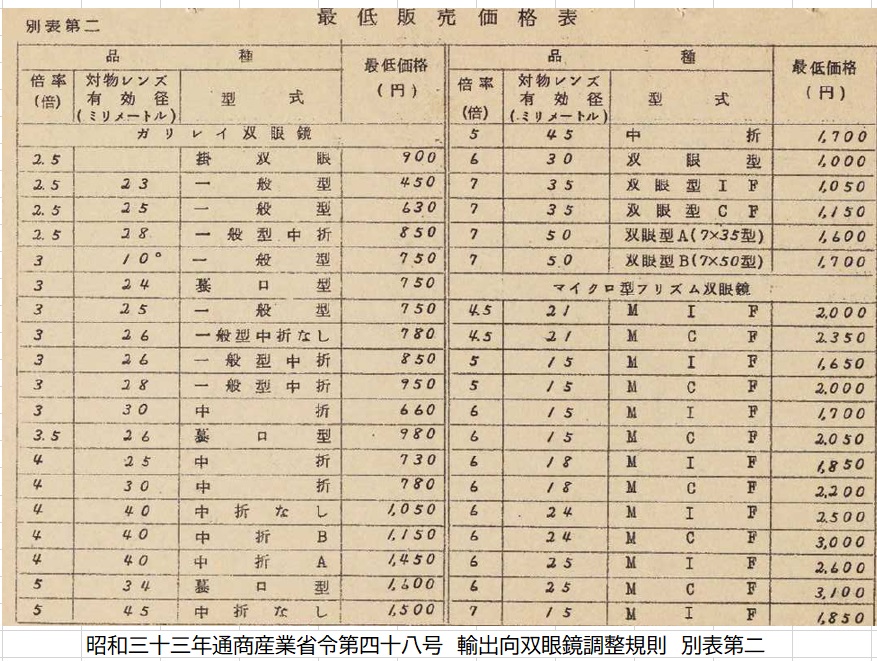 最低販売価格表
別表第二
品種 最低価格(円)
倍率(倍) 対物レンズ有効径(ミリメートル) 型式
ガリレイ双眼鏡
2.5 掛双眼 900
2.5 23 一般型 450
2.5 25 一般型 630
2.5 28 一般型中折 850
3 10° 一般型 750
3 24 型 750
3 25 一般型 750
3 26 一般型中折なし 780
3 26 一般型中折 850
3 28 一般型中折 950
3 30 中折 660
3.5 26 型 980
4 25 中折 730
4 30 中折 780
4 40 中折なし 1,050
4 40 中折B 1,150
4 40 中折A 1,450
5 34 型 1,600
5 45 中折なし 1,500
品種 最低価格(円)
倍率(倍) 対物レンズ有効径(ミリメートル) 型式
5 45 中折 1,700
6 30 双眼型 1,000
7 35 双眼型IF 1,050
7 35 双眼型CF 1,150
7 50 双眼型A(7×35型) 1,600
7 50 双眼型B(7×50型) 1,700
マイクロ型プリズム双眼鏡
4.5 21 MIF 2,000
4.5 21 MCF 2,350
5 15 MIF 1,650
5 15 MCF 2,000
6 15 MIF 1,700
6 15 MCF 2,050
6 18 MIF 1,850
6 18 MCF 2,200
6 24 MIF 2,500
6 24 MCF 3,000
6 25 MIF 2,600
6 25 MCF 3,100
7 15 MIF 1,850
昭和三十三年通商産業省令第四十八号 輸出向双眼鏡調整規則 別表第二